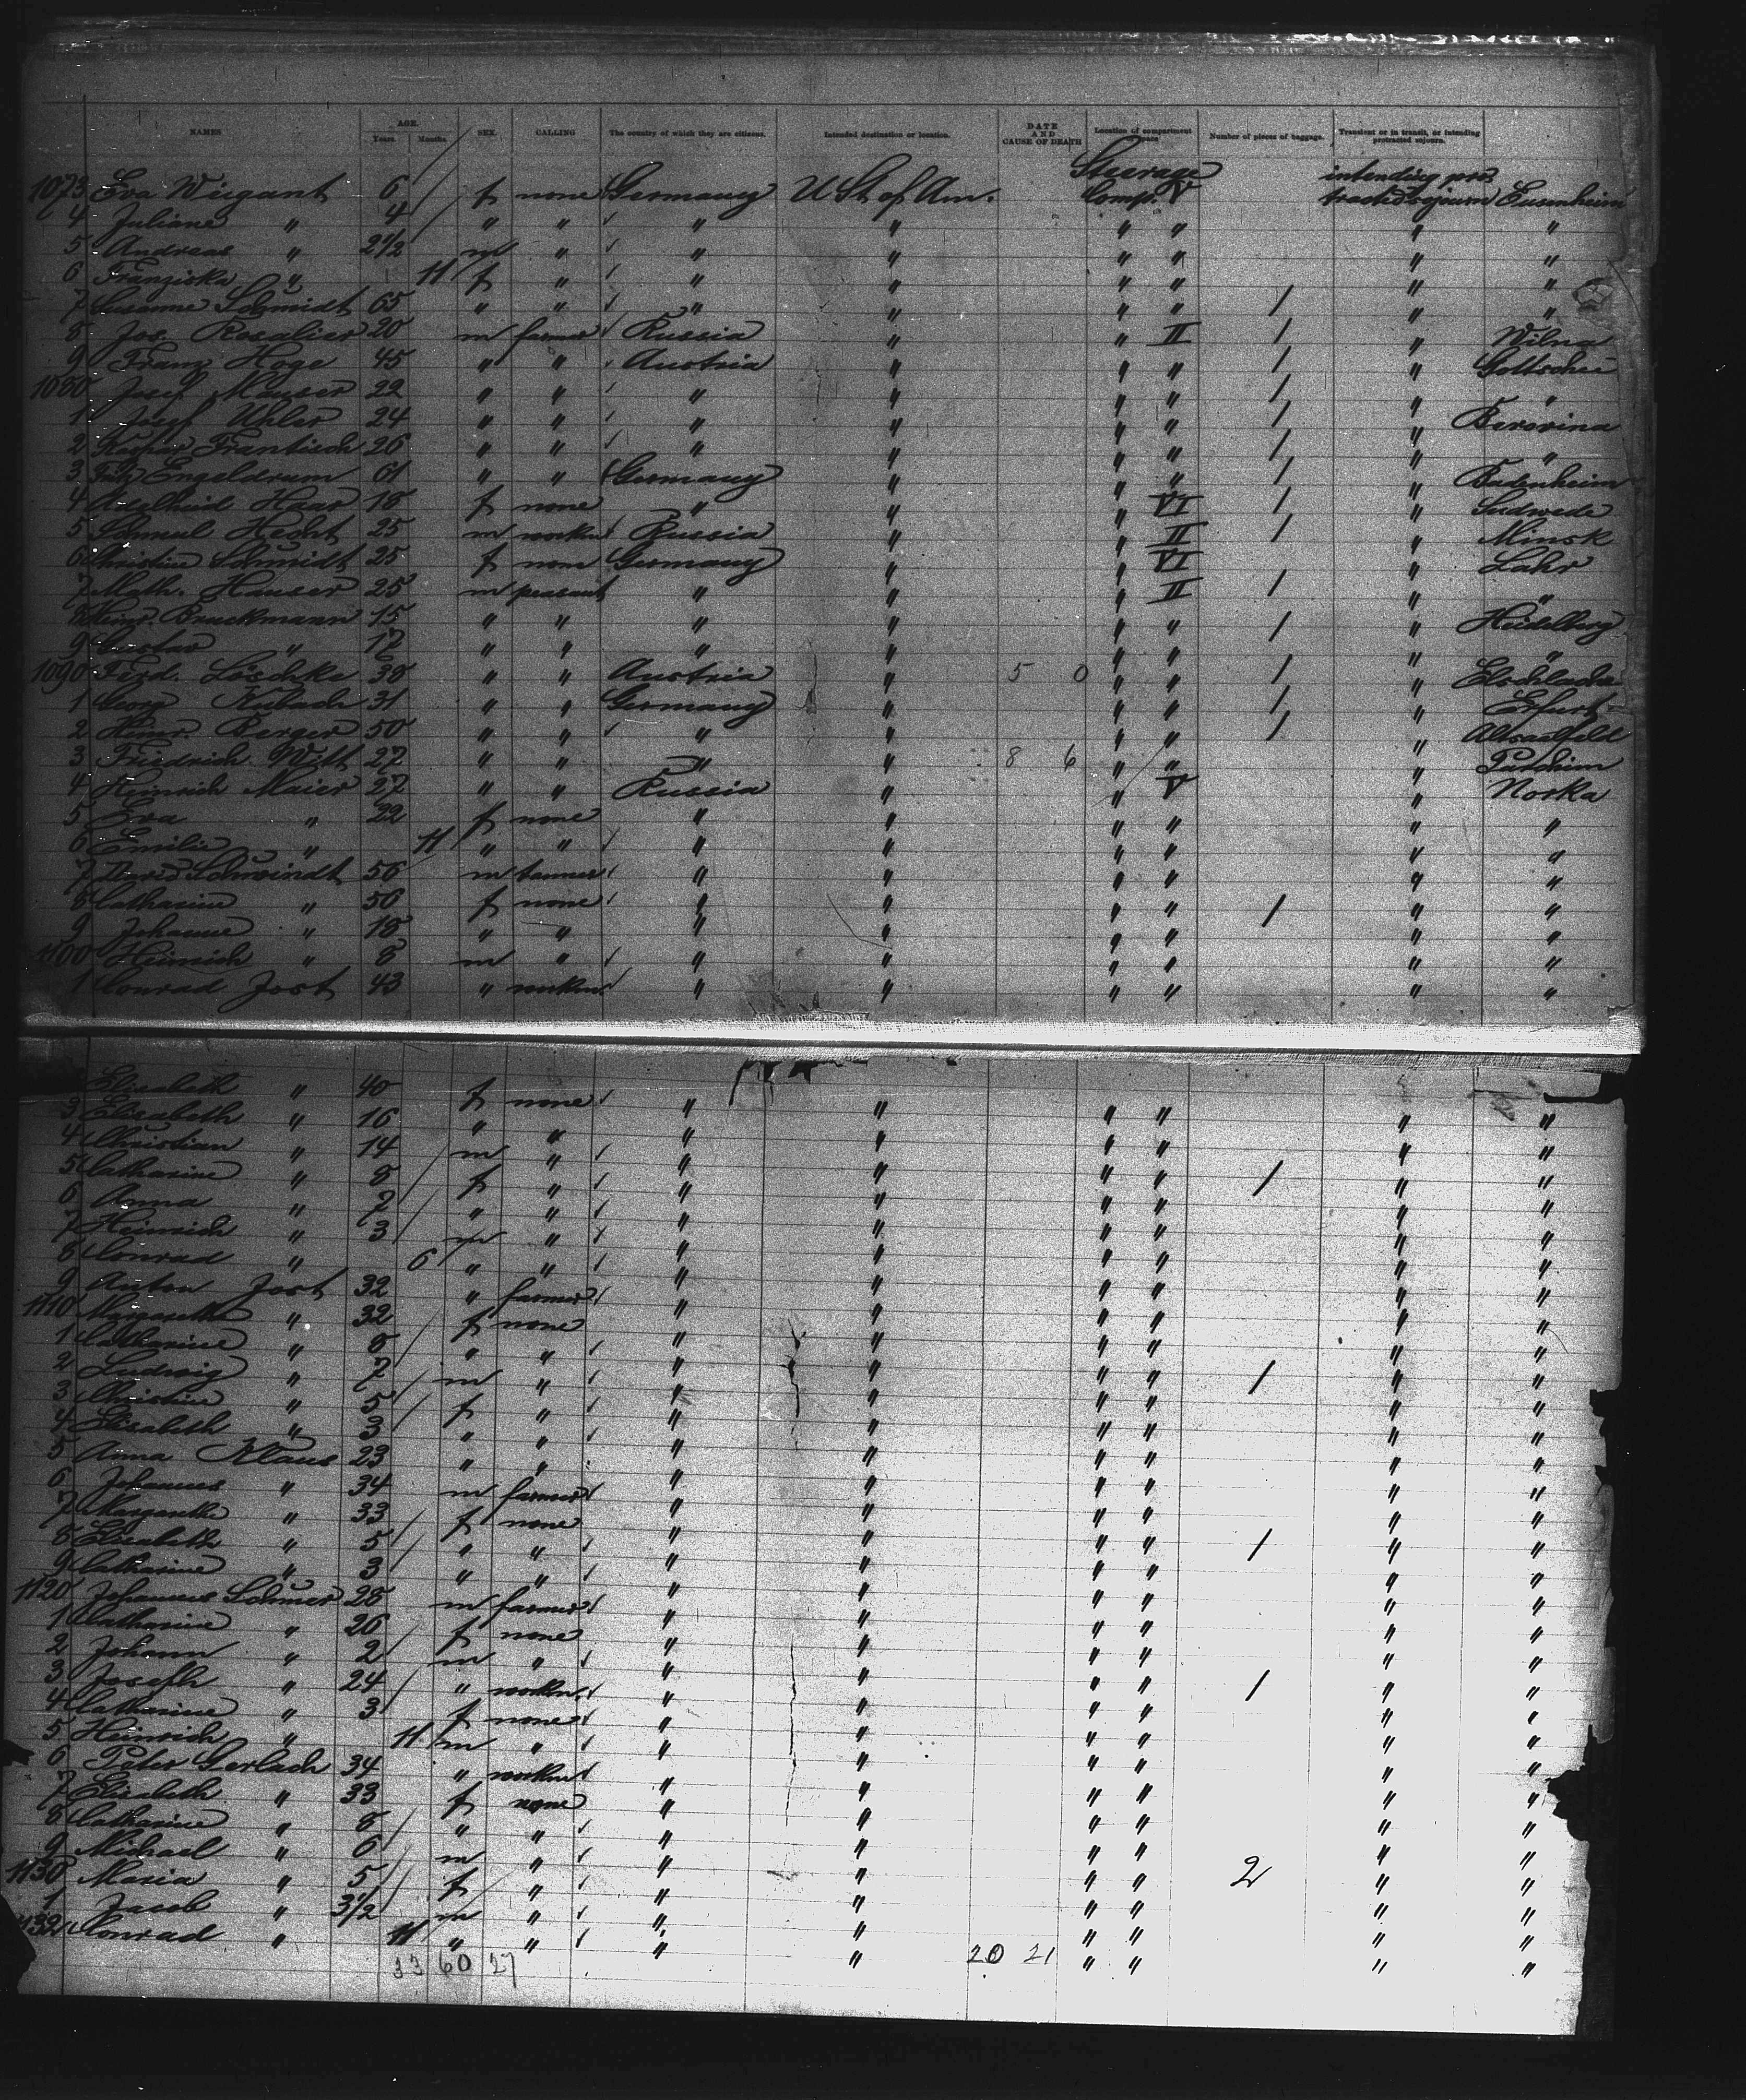 NAMES AGE. Years. Months. SEX. CALLING The country of which they are citizens. Intended destination or location. DATE AND CAUSE OF DEATH Location of compartment or space Number of pieces of baggage. Transient or in transit, or intending protracted sojourn.
1073 Eva Wiegant 6 f none Germany U St of Am. Steerage Comp. V intending protracted sojourn Eusenheim
4 Juliane " 4 " " " " " " " "
5 Andreas " 2 1/2 m " " " " " " "
6 Franziska " 11 f " " " " " " "
7 Susanne Schmidt 65 " " " " " " 1 " "
8 Jos. Rosalier 20 m farmer Russia " " II 1 " Wilna
9 Franz Hoge 45 " " Austria " " " 1 " Gottschee
1080 Josef Mauser 22 " " " " " " 1 " "
1 Josef Uhler 24 " " " " " " 1 "
2 Frantisch 26 " " " " " " 1 " "
3 Engeldrum 61 " " Germany " " " 1 " Budenheim
4 Adelheid Haar 18 f none " " " VI 1 " Sudwede
5 Schmul Hecht 25 m workm Russia " " II 1 " Minsk
6 Christine Schmidt 25 f none Germany " " VI " Lahr
7 Math. Hauser 25 m peasant " " " II 1 " "
8 Heinr. Bruckmann 15 " " " " " " 1 " Heidelberg
9 Gustav " 17 " " " " " " " "
1090 Ferd. Löschke 38 " " Austria " 5 0 " " 1 "
1 Georg Kubach 31 " " Germany " " " 1 " Erfurt
2 Heinr. Berger 50 " " " " " " 1 "
3 Friedrich Witt 27 " " " " 8 6 " " " Parchim
4 Heinrich Maier 27 " " Russia " " V " Norka
5 Eva " 22 f none " " " " " "
6 Emilie " 11 " " " " " " " "
7 David Schwindt 56 m farmer " " " " " "
8 Catharine " 56 f none " " " " 1 " "
9 Johanne " 18 " " " " " " " "
1100 Heinrich " 8 m " " " " " " "
1 Conrad Jost 43 " workm " " " " " "
Elisabeth " 40 f none " " " " " "
3 Elisabeth " 16 " " " " " " " "
4 Christian " 14 m " " " " " " "
5 Catharine " 8 f " " " " " 1 " "
6 Anna " 7 " " " " " " " "
7 Heinrich " 3 m " " " " " " "
8 Conrad " 6 " " " " " " " "
9 Anton Jost 32 " farmer " " " " " "
1110 Margaretha " 32 f none " " " " " "
1 Catharine " 8 " " " " " " " "
2 Ludwig " 7 m " " " " " 1 " "
3 Christine " 5 f " " " " " " "
4 Elisabeth " 3 " " " " " " " "
5 Anna Klaus 23 " " " " " " " "
6 Johannes " 34 m farmer " " " " " "
7 Margaretha " 33 f none " " " " " "
8 Elisabeth " 5 " " " " " " 1 " "
9 Catharine " 3 " " " " " " " "
1120 Johannes Schmer 28 m farmer " " " " " "
1 Catharine " 26 f none " " " " " "
2 Johann " 2 m " " " " " " "
3 Joseph " 24 " workm. " " " " 1 " "
4 Catharine " 3 f none " " " " " "
5 Heinrich " 11 m " " " " " " "
6 Peter Gerlach 34 " workm " " " " " "
7 Elisabeth " 33 f none " " " " " "
8 Catharine " 8 " " " " " " " "
9 Michael " 6 m " " " " " " "
1130 Maria " 5 f " " " " " 2 " "
1 Jacob " 3 1/2 m " " " " " " "
1132 Conrad " 11 " " " " " " " "
33 60 27 20 21